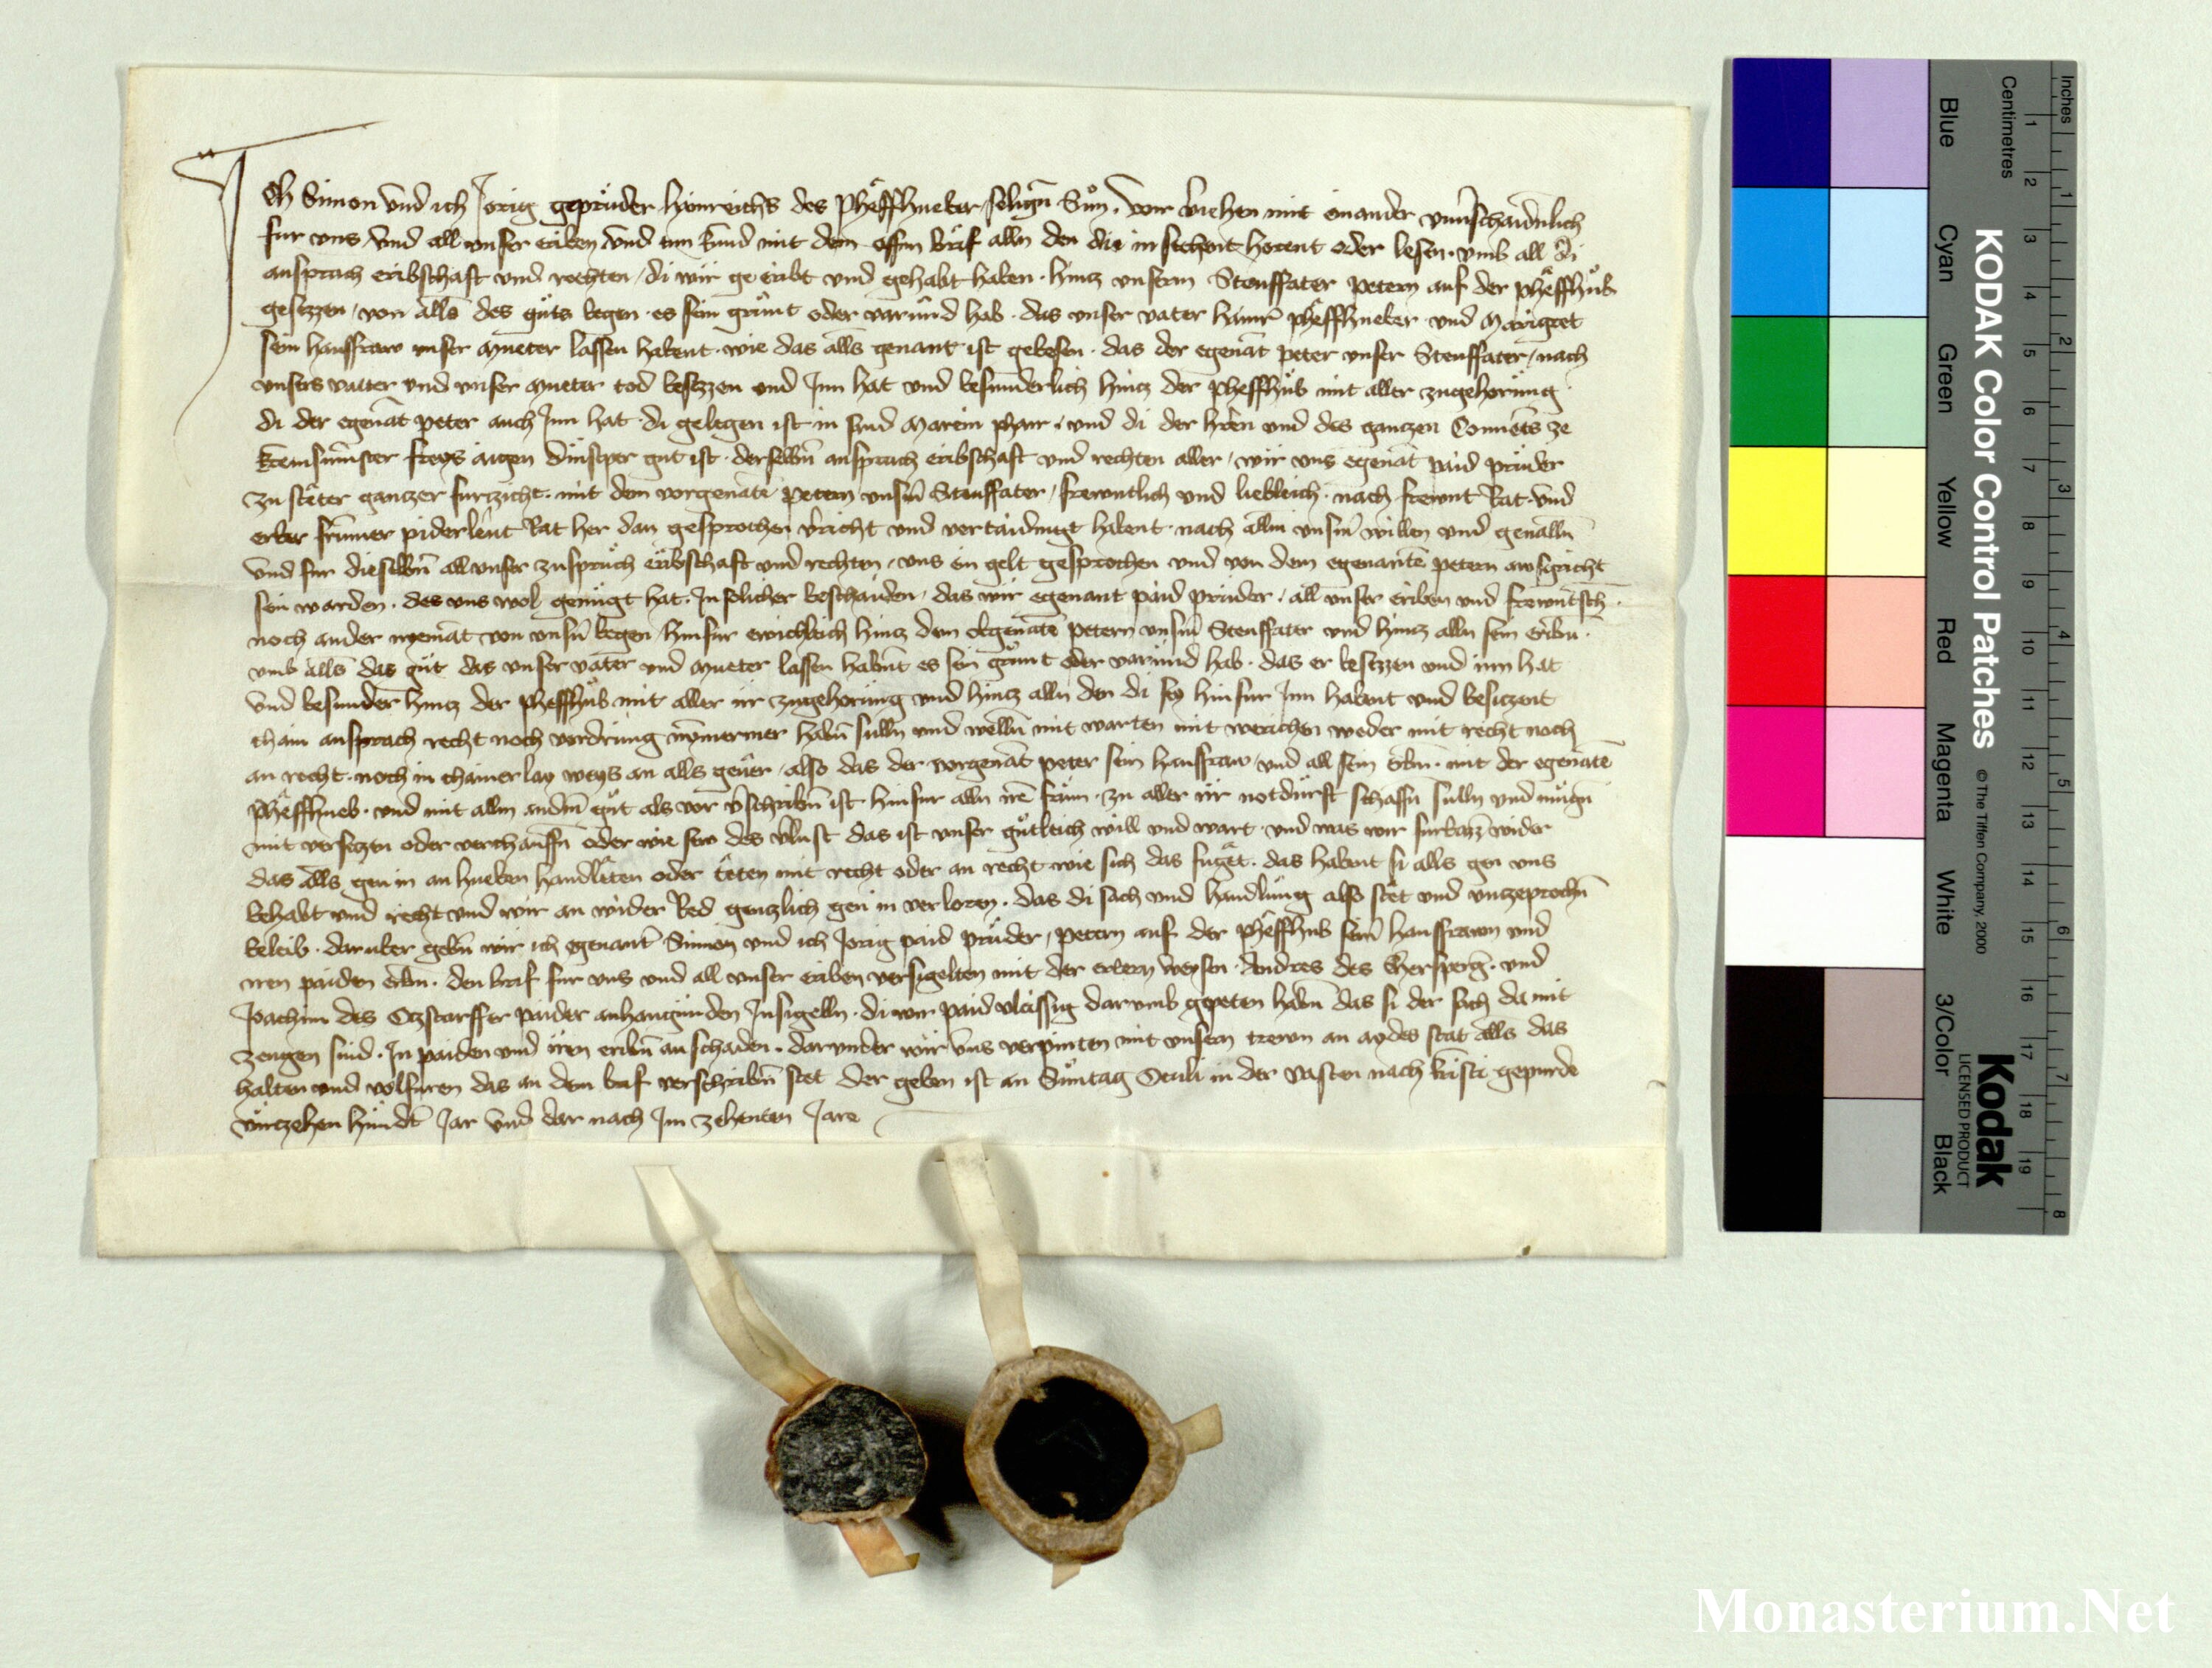 Ich Simon vnd ich Jorig geprüder Hainreichs des Pheffhueber seligñ Sün. Wir v̄iehen mit einander vnu̅schaidenlich
fur vns vnd all vnser eriben vnd tun kund mit dem offen brief alln den die in sehent horent oder lesen. vmb all di
ansprach eribschaft vnd rechten / di wir ge eribt vnd gehabt haben. hincz vnserm Steuffater Petern auf der Pheffhůb
gesezzen / von alls des guts wegen. es sein grünt oder varund hab. das vnser vater Hainr̄ Pheffhueber vnd Margret
sein hausfraw vnser Mueter lassen habent. wie das alls genant ist gebesen. das der egenāt Peter vnser Steuffater / nach
vnsers vater vnd vnser Mueter tod besezzen vnd Inn hat vnd besunderlich hincz der Pheffhůb mit aller zugehorung
di der egenāt Peter auch Inn hat. di gelegen ist in sand Marein pharr. vnd di der hērn vnd des ganczen Conuēts ze
Kremsmu̅ster freys aigen dinstper gut ist. derselbn̄ ansprach eribschaft vnd rechten aller / wir vns egenāt paid prüder
zu stäter ganczer furczicht. mit dem vorgenāte Petern vnsm̄ Steuffater / frewntlich vnd liebleich. nach frewnt Rat vnd
erber frumer piderleut Rat her dan gesprochen v̄richt vnd vertaidingt habent. nach allm vnsm̄ willen vnd geualln̄
vnd fur dieselbn̄ all vnser zuspruch eribschaft vnd rechten / vns ein gelt gesprochen vnd von dem egenante Petern awsgricht
sein warden. des vns wol genugt hat. In solicher beschaiden / das wir egenant paid prüder. all vnser eriben vnd frewntsch.
noch ander nyemāt von vnsn̄ wegen / hinfur ewichleich hincz dem obgenāte Petern vnsm̄ Steuffater vnd hincz alln sein eribn.
vmb alls das gut das vnser vater vnd Mueter lassen habn̄t es sein grünt oder varund hab. das er besezzen vnd inn hat
vnd besunder hincz der Pheffhůb mit aller ir zugehorung vnd hincz alln den di sy hinfur Inn habent vnd besiczent
chain ansprach recht noch vordrung nymermer habn̄ sulln vnd wellen̄ mit warten mit werichen weder mit recht noch
an recht. noch in chainer lay weys an alls geuer. also das der vorgenāt Peter sein hausfraw / vnd all sein eribn̄. mit der egenāte
Pheffhueb. vnd mit allm andm̄ gut als vor v̄schribn̄ ist hinfur alln irē frum. zu aller ir notdurft schaffn sulln vnd mugn
mit verseczen oder verchauffn̄ oder wie sew des v̄lust das ist vnser gutleich will vnd wart. vnd was wir furbazz wider
das alls gen in an hueben handlaten oder teten mit recht oder an recht wie sich das fuget. das habent si alls gen vns
behabt vnd recht vnd wir an wider Red genczlich gen in verloren. das di sach vnd handlung also stet vnd vnczeprochn̄
beleib. daruber gebn̄ wir ich egenant Simon vnd ich Jorig paid prüder / Petern auf der Pheffhůb seinr̄ hausfrawn vnd
iren paiden eribn̄. den brief fur vns vnd all vnser eriben versigelten mit der erbern weysen. Andres des Eherspergr̄. vnd
Joachim des Oczstarffer paider anhangunden Insigelln. di wir paid vleissig darumb gepeten habn̄ das si der sach da mit
zeugen sind. In paiden vnd iren eribn̄ an schaden. darunder wir vns verpinten mit vnsern trewn an aydes stat alls das
halten vnd volfuren das an dem brief verschribn̄ stet Der geben ist an Suntag Oculi in der vasten nach Kristi gepurde
virczehen hundt̄ Jar vnd dar nach Im zehenten Jare
Inches
Centimetres
KODAK Color Control Patches © The Tiffen Company, 2000
Kodak
LICENSED PRODUCT
Blue
Cyan
Green
Yellow
Red
Magenta
White
3/Color
Black
1 2 3 4 5 6 7 8 9 10 11 12 13 14 15 16 17 18 19
1 2 3 4 5 6 7 8
Monasterium.Net